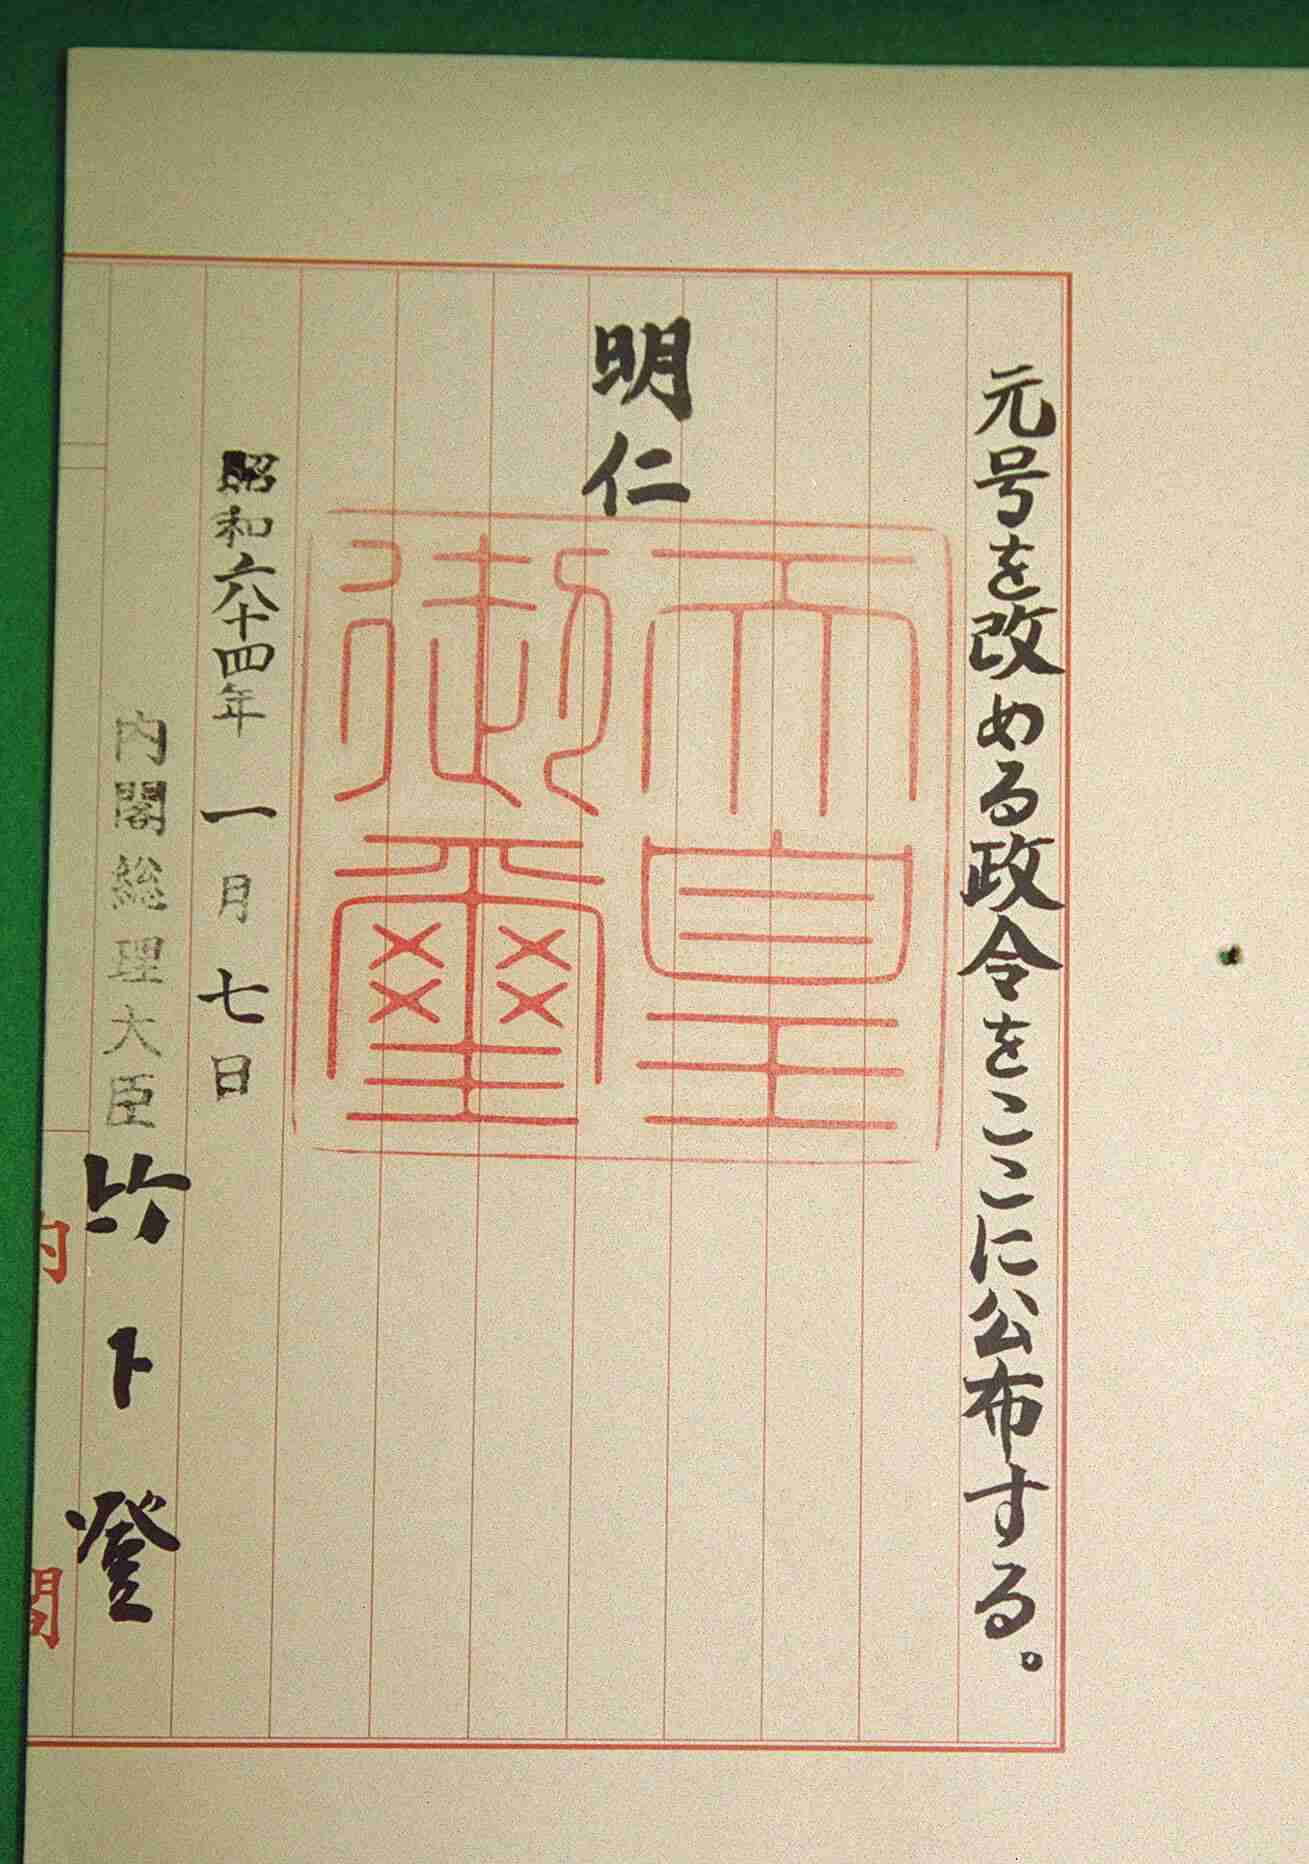 元号を改める政令をここに公布する。
明仁
天皇
御璽
昭和六十四年一月七日
内閣総理大臣 竹下登
内閣